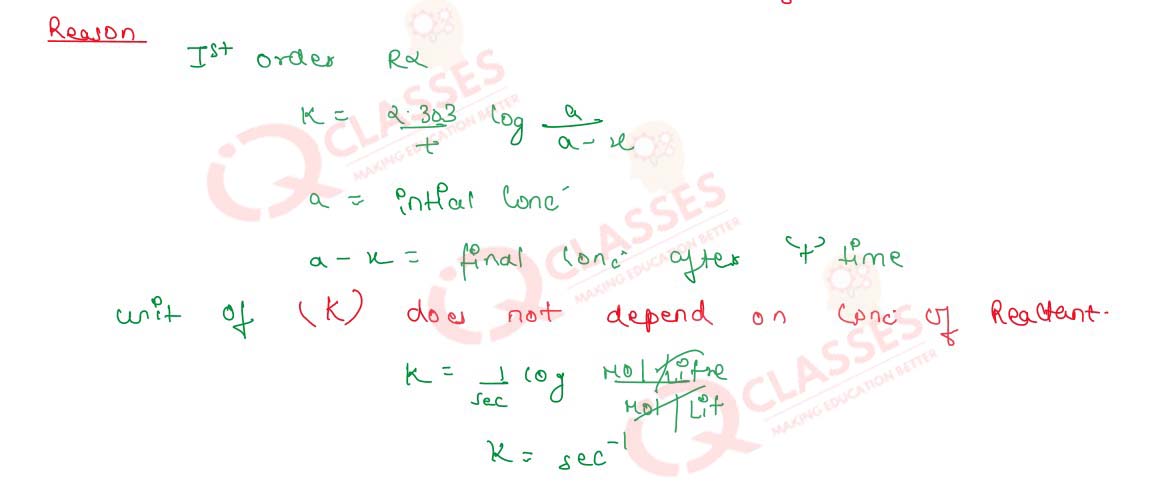 Reason
Ist order R2
K = 2.303/t log a/a-x
a = initial Conc.
a - x = final Conc. after 't' time
unit of (K) does not depend on Conc. of Reactant.
K = 1/sec log Mol/Litre / Mol/Lit
K = sec⁻¹
IQ CLASSES
MAKING EDUCATION BETTER
IQ CLASSES
MAKING EDUCATION BETTER
IQ CLASSES
MAKING EDUCATION BETTER